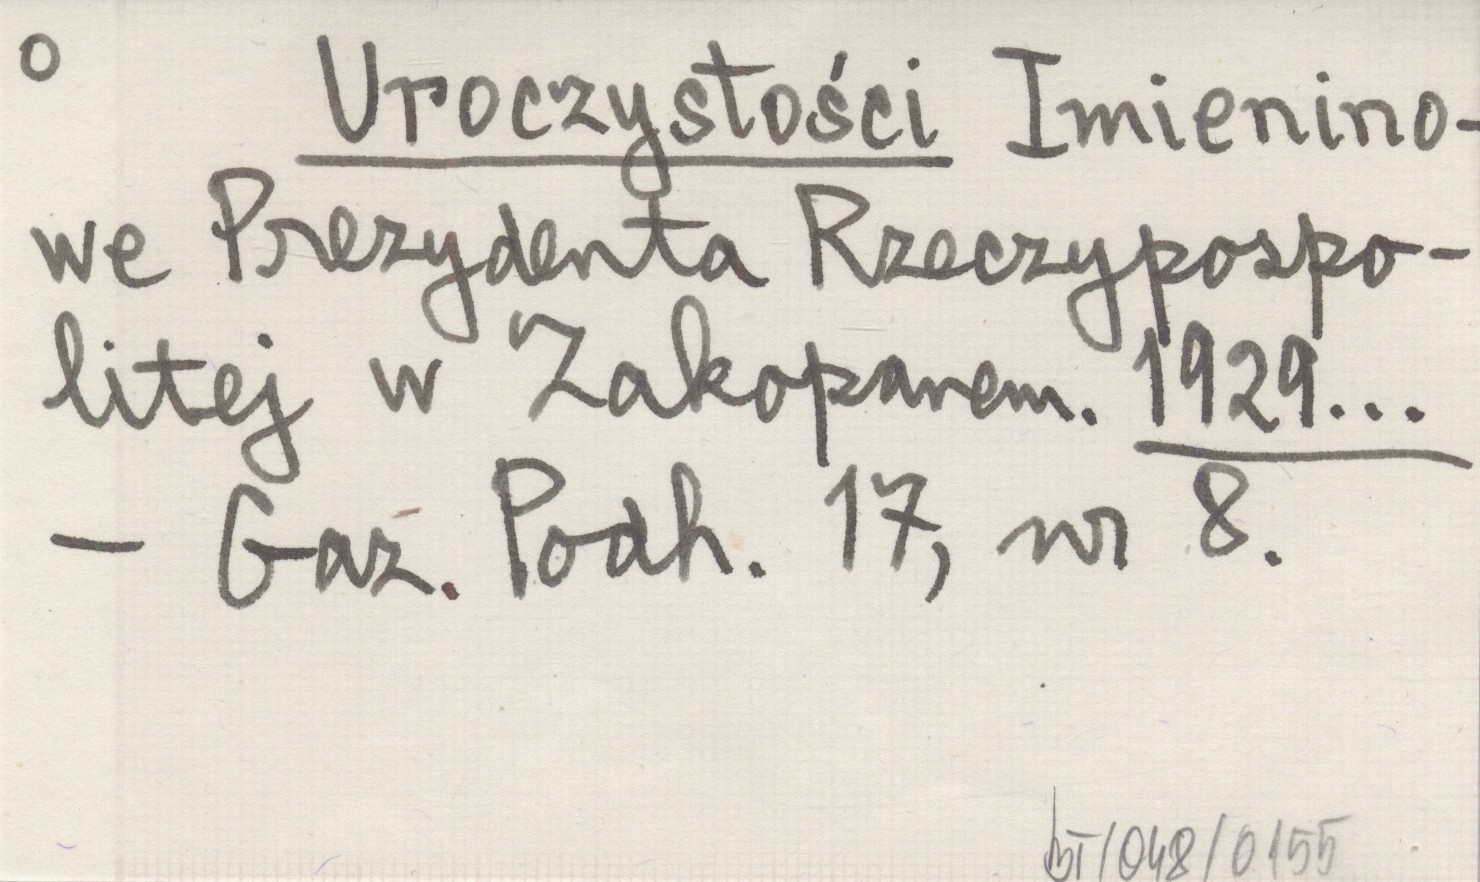 o Uroczystości Imienino-
we Prezydenta Rzeczypospo-
litej w Zakopanem. 1929...
— Gaz. Podh. 17, nr 8.
bT/048/0155